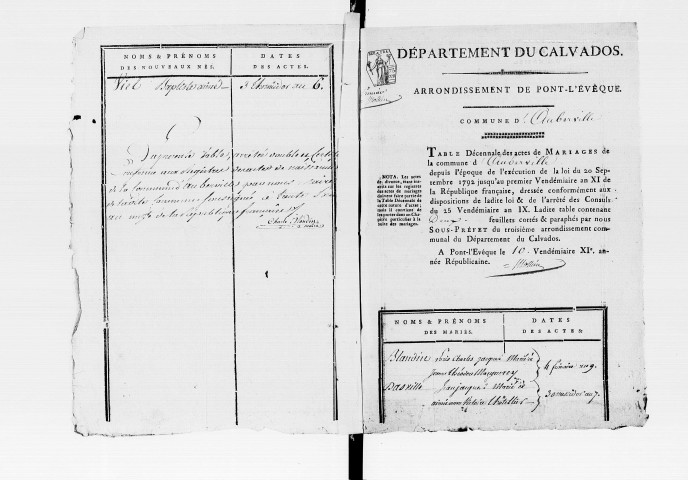 NOMS & PRÉNOMS
DES NOUVEAUX NÉS.
DATES
DES ACTES.
Viel Baptiste aimé 3 thermidor an 6.
La présente table, arrêtée double et
conforme aux registres des actes de naissances
de la commune d'auberville par nous maire
de ladite commune soussigné
an onze de la République française
Charle Blandin
maire
DÉPARTEMENT DU CALVADOS.
ARRONDISSEMENT DE PONT-L'ÉVÊQUE.
COMMUNE D'Auberville
TABLE Décennale des actes de MARIAGES de
la commune d'Auberville
depuis l'époque de l'exécution de la loi du 20 Sep-
tembre 1792 jusqu'au premier Vendémiaire an XI de
la République française, dressée conformément aux
dispositions de ladite loi & de l'arrêté des Consuls
du 25 Vendémiaire an IX. Ladite table contenant
Deux feuillets cottés & paraphés par nous
SOUS-PRÉFET du troisième arrondissement com-
munal du Département du Calvados.
A Pont-l'Evêque le 10 Vendémiaire XIe. an-
née Républicaine.
NOTA. Les actes
de divorce, étant ins-
crits sur les registres
des actes de mariages
doivent faire partie de
la Table Décennale de
cette nature d'actes;
mais il convient de
les porter dans un Cha-
pitre particulier à la
suite des mariages.
NOMS & PRÉNOMS
DES MARIÉS.
DATES
DES ACTES.
Blandin Charles jacque Marié à
4 an 9.
Basville jean jacque Marié à
3 messidor an 7.